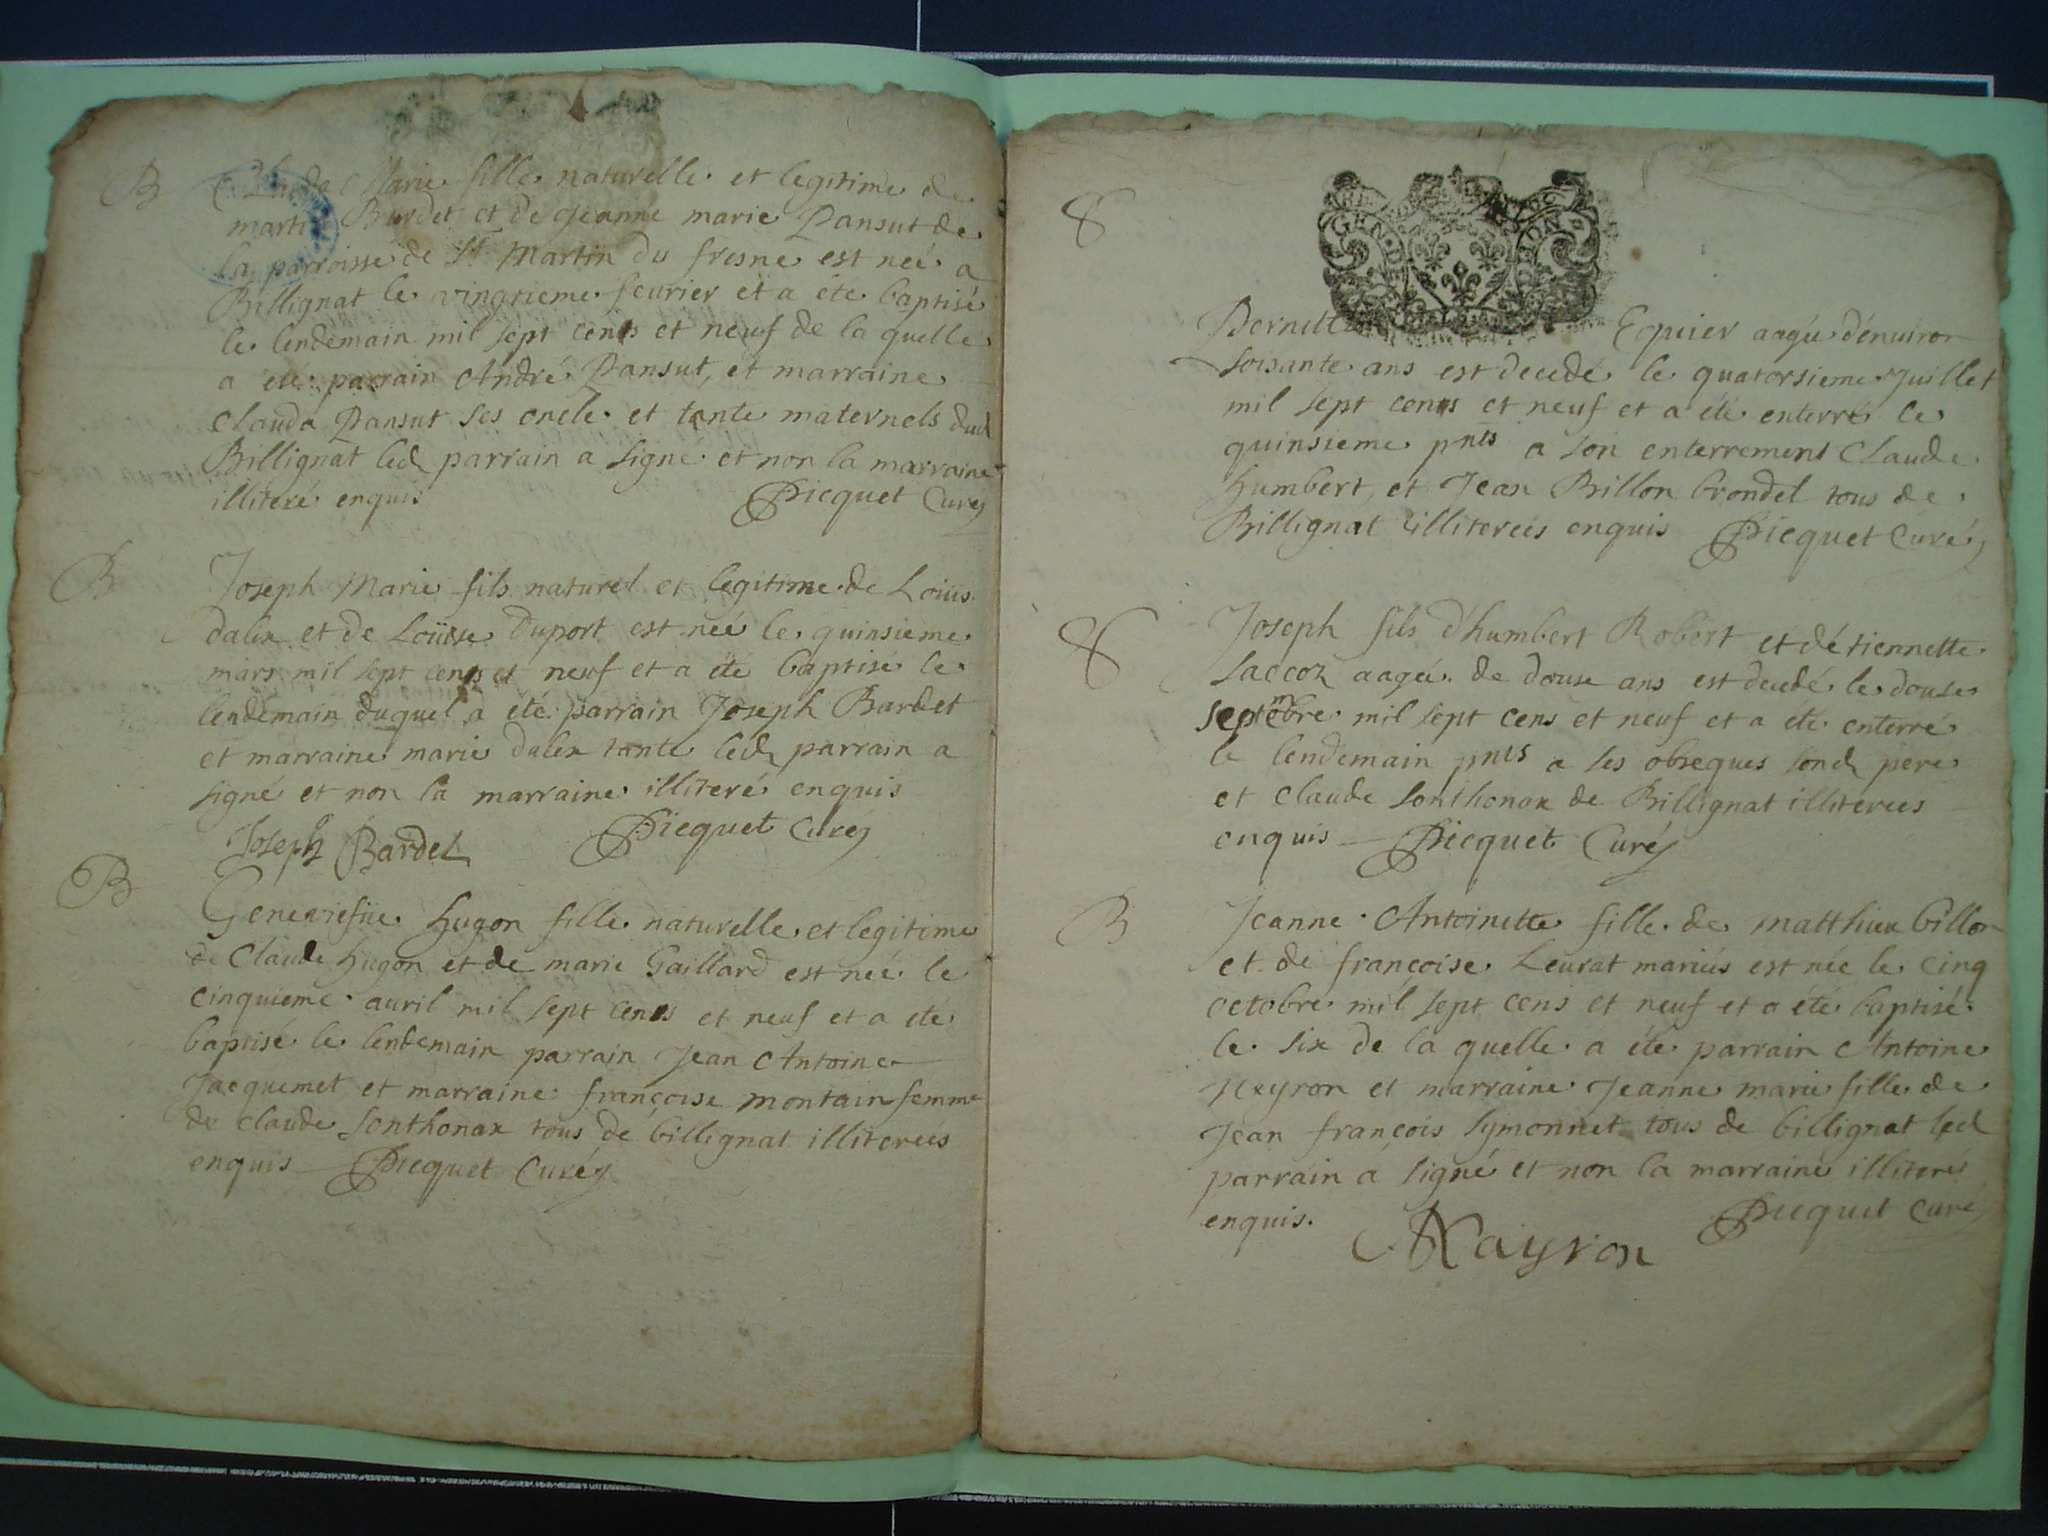 B
Clauda Marie fille naturelle et legitime de
martin Burdet et de Jeanne marie Pansut de
la parroisse de St Martin du fresne est neé a
Billignat le vingtieme feurier et a éte baptisé
le lendemain mil sept cents et neuf de la quelle
a éte parrain André Pansut, et marraine
Clauda Pansut ses oncle et tante maternels dud
Billignat led parrain a signe et non la marraine
illiteré enquis Picquet Curé
B
Joseph Marie fils naturel et legitime de Loüis
dalex et de Loüise Duport est neé le quinsieme
mars mil sept cents et neuf et a éte baptisé le
lendemain duquel a éte parrain Joseph Bardet
et marraine marie dalex tante led parrain a
signé et non la marraine illiteré enquis
Joseph Bardet Picquet Curé
B
Geneviefue Hugon fille naturelle et legitime
de Claude hugon et de marie Gaillard est neé le
cinquieme auril mil sept cents et neuf et a éte
baptisé le lendemain parrain Jean Antoine
Jacquemet et marraine françoise montain femme
de claude Sonthonax tous de billignat illitereés
enquis Picquet Curé
S
GEN DIION
Pernette Equier aagée d'enuiron
soisante ans est decedé le quatorsieme Juillet
mil sept cents et neuf et a été enterré le
quinsieme pnts a son enterrement Claude
Humbert, et Jean Billon brondel tous de
Billignat illitereés enquis Picquet Curé
S
Joseph fils d'humbert Robert et détiennette
Saccoz aagé de douse ans est decedé le douse
septembre mil sept cens et neuf et a été enterré
le lendemain pnts a ses obseques sond pere
et Claude Sonthonax de Billignat illiterees
enquis Picquet Curé
B
Jeanne Antoinette fille de matthieu billon
et de françoise Leurat mariés est née le cinq
octobre mil sept cens et neuf et a été baptisé
le six de la quelle a éte parrain Antoine
Neyron et marraine Jeanne marie fille de
Jean françois Symonnet tous de billignat led
parrain a signé et non la marraine illiteré
enquis. Picquet Curé
A Nayron